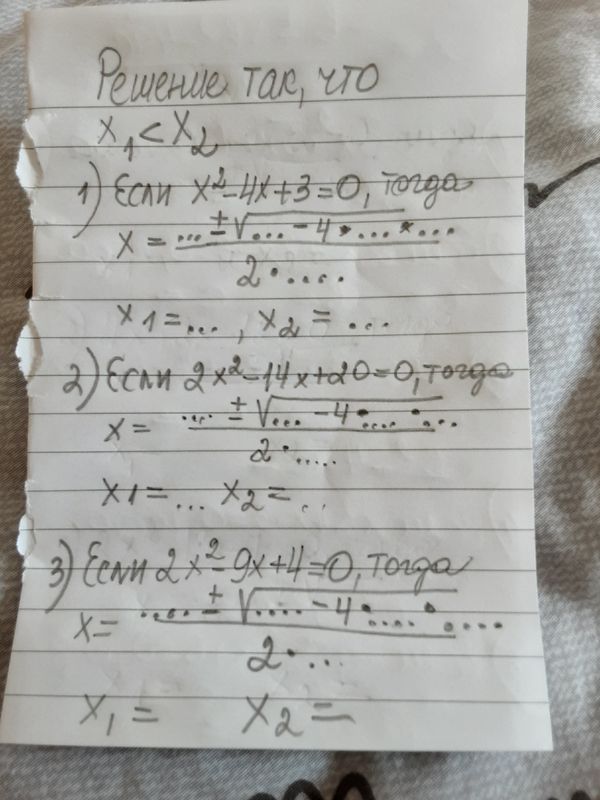 Решение так, что
x₁ < x₂
1) Если x² - 4x + 3 = 0, тогда
x = ... ± √... - 4 · ... · ...
2 · ....
x1 = ... , x₂ = ...
2) Если 2x² - 14x + 20 = 0, тогда
x = .... ± √... - 4 · .... · ...
2 · .....
x1 = ... x₂ = ...
3) Если 2x² - 9x + 4 = 0, тогда
x = ..... ± √.... - 4 · .... · ....
2 · ...
x₁ = x₂ =